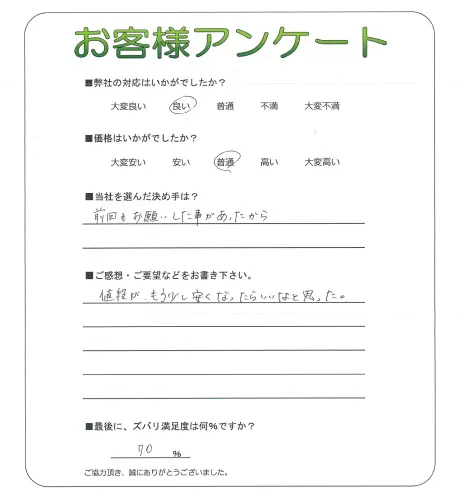 お客様アンケート
■弊社の対応はいかがでしたか？
大変良い 良い 普通 不満 大変不満
■価格はいかがでしたか？
大変安い 安い 普通 高い 大変高い
■当社を選んだ決め手は？
前回もお願いした事があったから
■ご感想・ご要望などをお書き下さい。
値段が、もう少し安くなったらいいなと思った。
■最後に、ズバリ満足度は何％ですか？
70 ％
ご協力頂き、誠にありがとうございました。